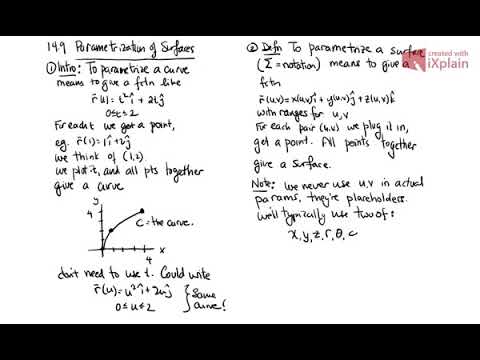 14.9 Parametrization of Surfaces
① Intro: To parametrize a curve
means to give a fctn like
r̄(t) = t²î + 2tĵ
0≤t≤2
For each t we get a point,
eg. r̄(1) = 1î + 2ĵ
we think of (1,2)
we plot it, and all pts together
give a curve
y
4
C = the curve.
x
4
don't need to use t. Could write
r̄(u) = u²î + 2uĵ
0≤u≤2
} Same curve!
② Defn To parametrize a surface
(Σ = notation) means to give a
fctn
r̄(u,v) = x(u,v)î + y(u,v)ĵ + z(u,v)k̂
with ranges for u, v
For each pair (u,v) we plug it in,
get a point. All points together
give a surface.
Note: we never use u,v in actual
params, they're placeholders.
We'll typically use two of:
x, y, z, r, θ,
created with
iXplain